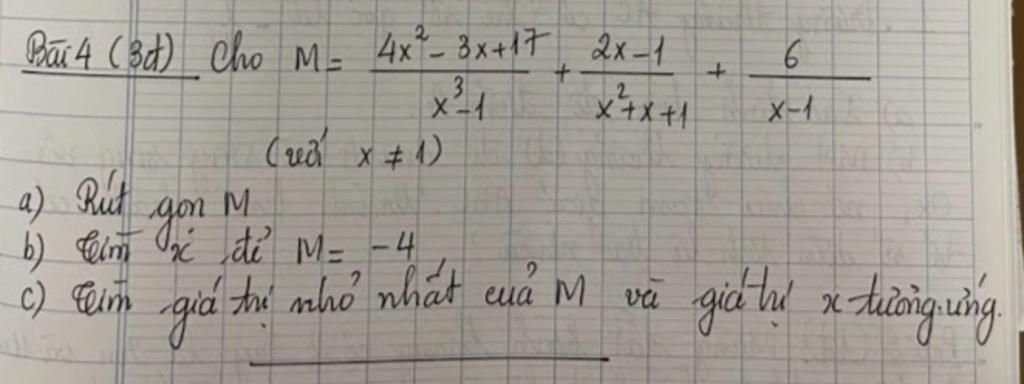 Bài 4 (3đ) Cho M = \frac{4x^2 - 3x + 17}{x^3 - 1} + \frac{2x - 1}{x^2 + x + 1} + \frac{6}{x - 1}
(với x ≠ 1)
a) Rút gọn M
b) Tìm x để M = -4
c) Tìm giá trị nhỏ nhất của M và giá trị x tương ứng.